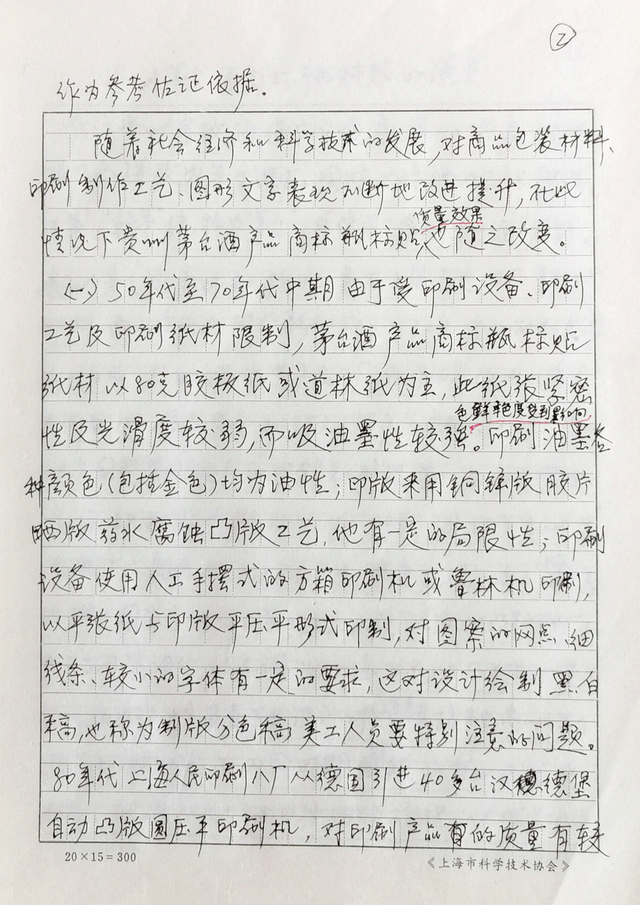 ②
作为参考佐证依据.
随着社会经济和科学技术的发展,对商品包装材料、
印刷制作工艺、图形文字表现不断地改进提升,在此
质量效果
情况下贵州茅台酒产品商标瓶标贴,也随之改变。
(一)50年代至70年代中期由于受印刷设备、印刷
工艺及印刷纸材限制,茅台酒产品商标瓶标贴
纸材以80克胶板纸或道林纸为主,此纸张紧密
色鲜艳度受到影响
性及光滑度较弱,而吸油墨性较强。印刷油墨各
种颜色(包括金色)均为油性;印版采用铜锌版胶片
晒版药水腐蚀凸版工艺,他有一定的局限性;印刷
设备使用人工手摆式的方箱印刷机或鲁林机印刷,
以平张纸与印版平压平形式印制,对图案的网点、细
线条、较小的字体有一定的要求,这对设计绘制黑白
稿,也称为制版分色稿,美工人员要特别注意的问题。
80年代上海人民印刷八厂从德国引进40多台汉德堡
自动凸版圆压平印刷机,对印刷产品的质量有较
20×15=300
《上海市科学技术协会》